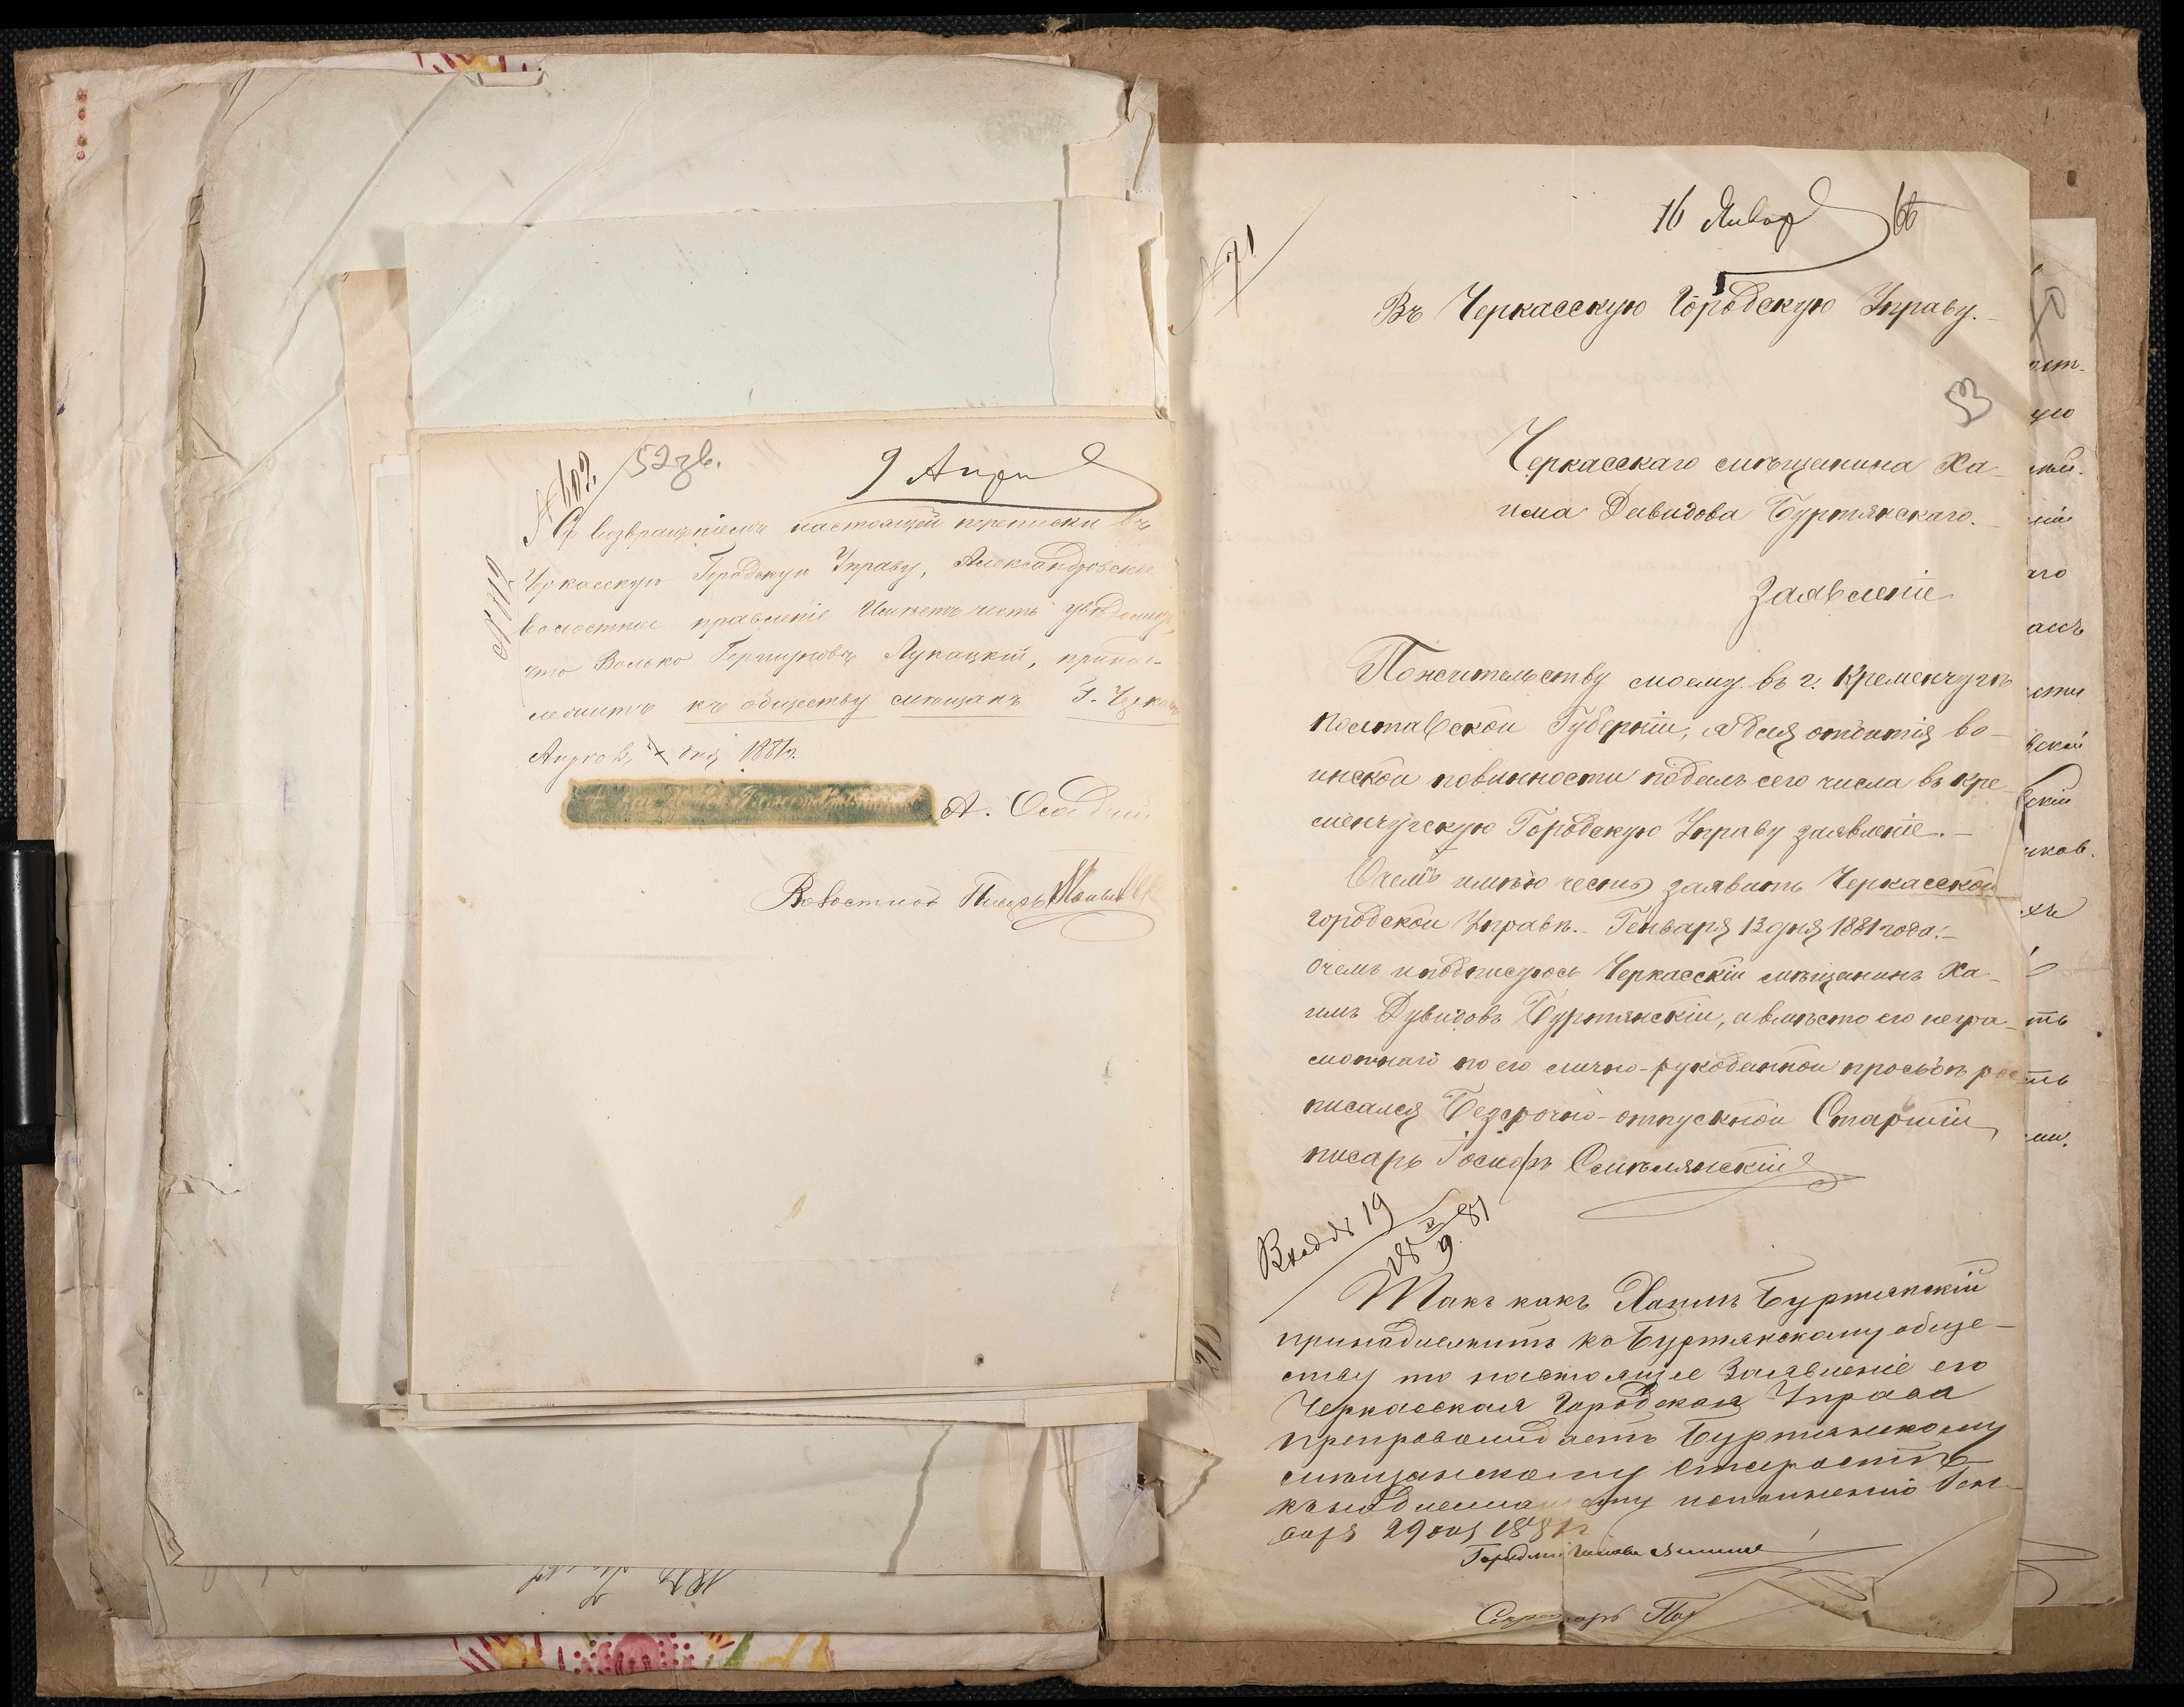 № 402
52 зв.
9 Апрѣ
Съ возвращеніемъ настоящей переписки въ
Черкасскую Городскую Управу, Александровское
волостное правленіе Имѣетъ честь увѣдомить,
что Волько Гершковъ Лукацкій, принад-
лежитъ къ обществу мѣщанъ Г. Черкасъ
Апрѣля 7 дня 1881 г.
А. Осадчій
Волостной Писарь
№ 71
16 Января
66
Въ Черкасскую Городскую Управу.
53
Черкасскаго мѣщанина Ха-
има Давидова Буртянскаго.
Заявленіе
По жительству моему въ г. Кременчугѣ
Полтавской Губерніи, я для отбытія во-
инской повинности подалъ сего числа въ Кре-
менчугскую Городскую Управу заявленіе.-
О чемъ имѣю честь заявить Черкасской
городской Управѣ. Генваря 13 дня 1881 года.-
о чемъ и подписуюсь Черкасскій мѣщанинъ Ха-
имъ Дувидовъ Буртянскій, а вмѣсто его негра-
мотнаго по его лично-рукоданной просьбѣ рос-
писался Безсрочно-отпускной Старшій
писарь Іосифъ Смѣлянскій
Вход № 19
9 81
Такъ какъ Хаимъ Буртянскій
принадлежитъ къ Буртянскому обще-
ству то настоящее Заявленіе его
Черкасская Городская Управа
препровождаетъ Буртянскому
мѣщанскому Старостѣ
къ надлежащему исполненію Ген-
варя 29 дня 1881 г
Городской Голова
Секретарь